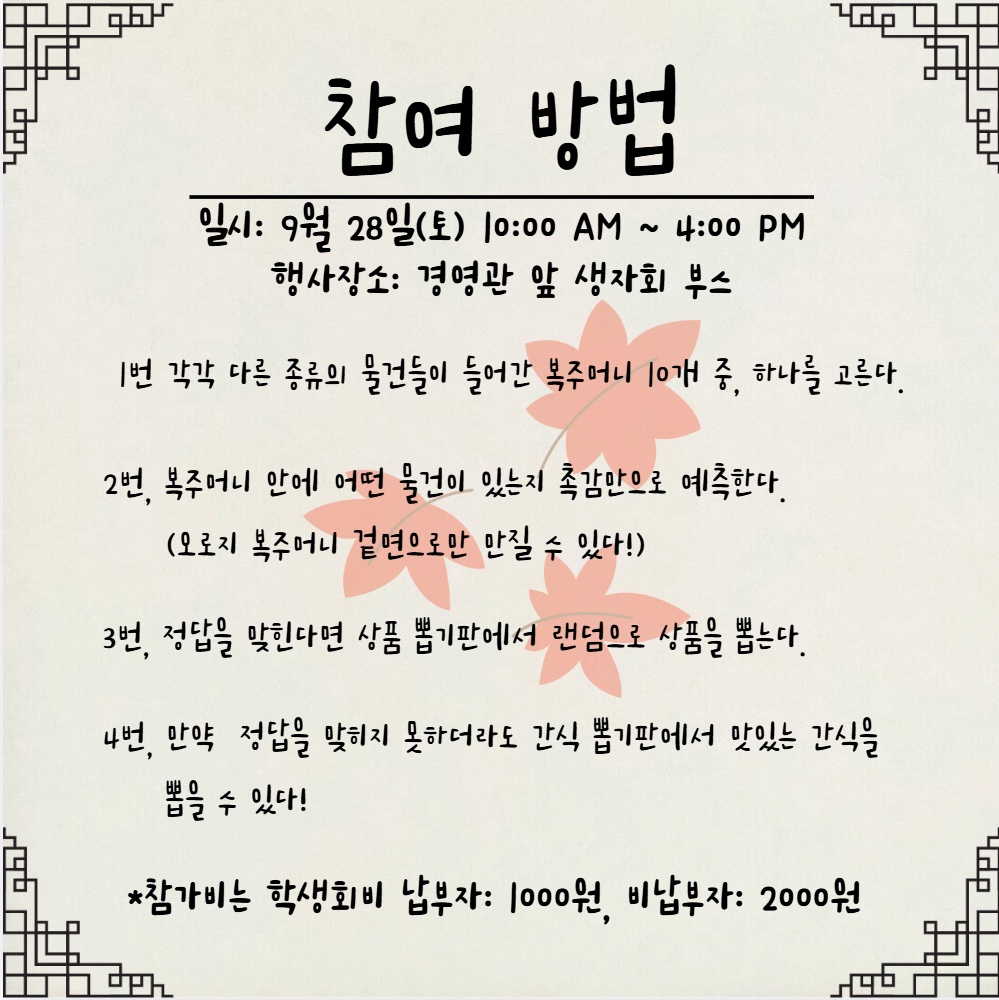 참여 방법
일시: 9월 28일(토) 10:00 AM ~ 4:00 PM
행사장소: 경영관 앞 생자회 부스
1번 각각 다른 종류의 물건들이 들어간 복주머니 10개 중, 하나를 고른다.
2번, 복주머니 안에 어떤 물건이 있는지 촉감만으로 예측한다.
(오로지 복주머니 겉면으로만 만질 수 있다!)
3번, 정답을 맞힌다면 상품 뽑기판에서 랜덤으로 상품을 뽑는다.
4번, 만약 정답을 맞히지 못하더라도 간식 뽑기판에서 맛있는 간식을
뽑을 수 있다!
*참가비는 학생회비 납부자: 1000원, 비납부자: 2000원